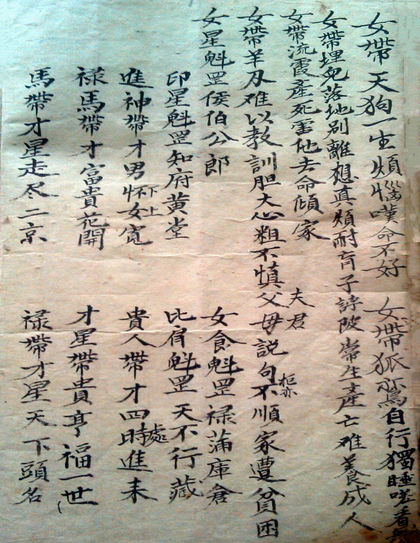 女帶天狗一生煩惱嘆命不好 女帶狐鸞自行獨睡看
女帶埋兒落地别離想真煩耐子常生產亡难養成人
女帶流霞產死害他去命傾家
女帶羊刃难以教訓胆大心粗不慎父母説句不順家遭貧困
夫君
女星魁罡侯伯公郎 女食魁罡禄蒲庫倉
印星魁罡知府黄堂 比肩魁罡天不行藏
進神帶才男怀女寬 貴人帶才四時進来
下上 處
禄馬帶才富貴花開 才星帶貴亨福一世
馬帶才星走尽二京 禄帶才星天下頭名